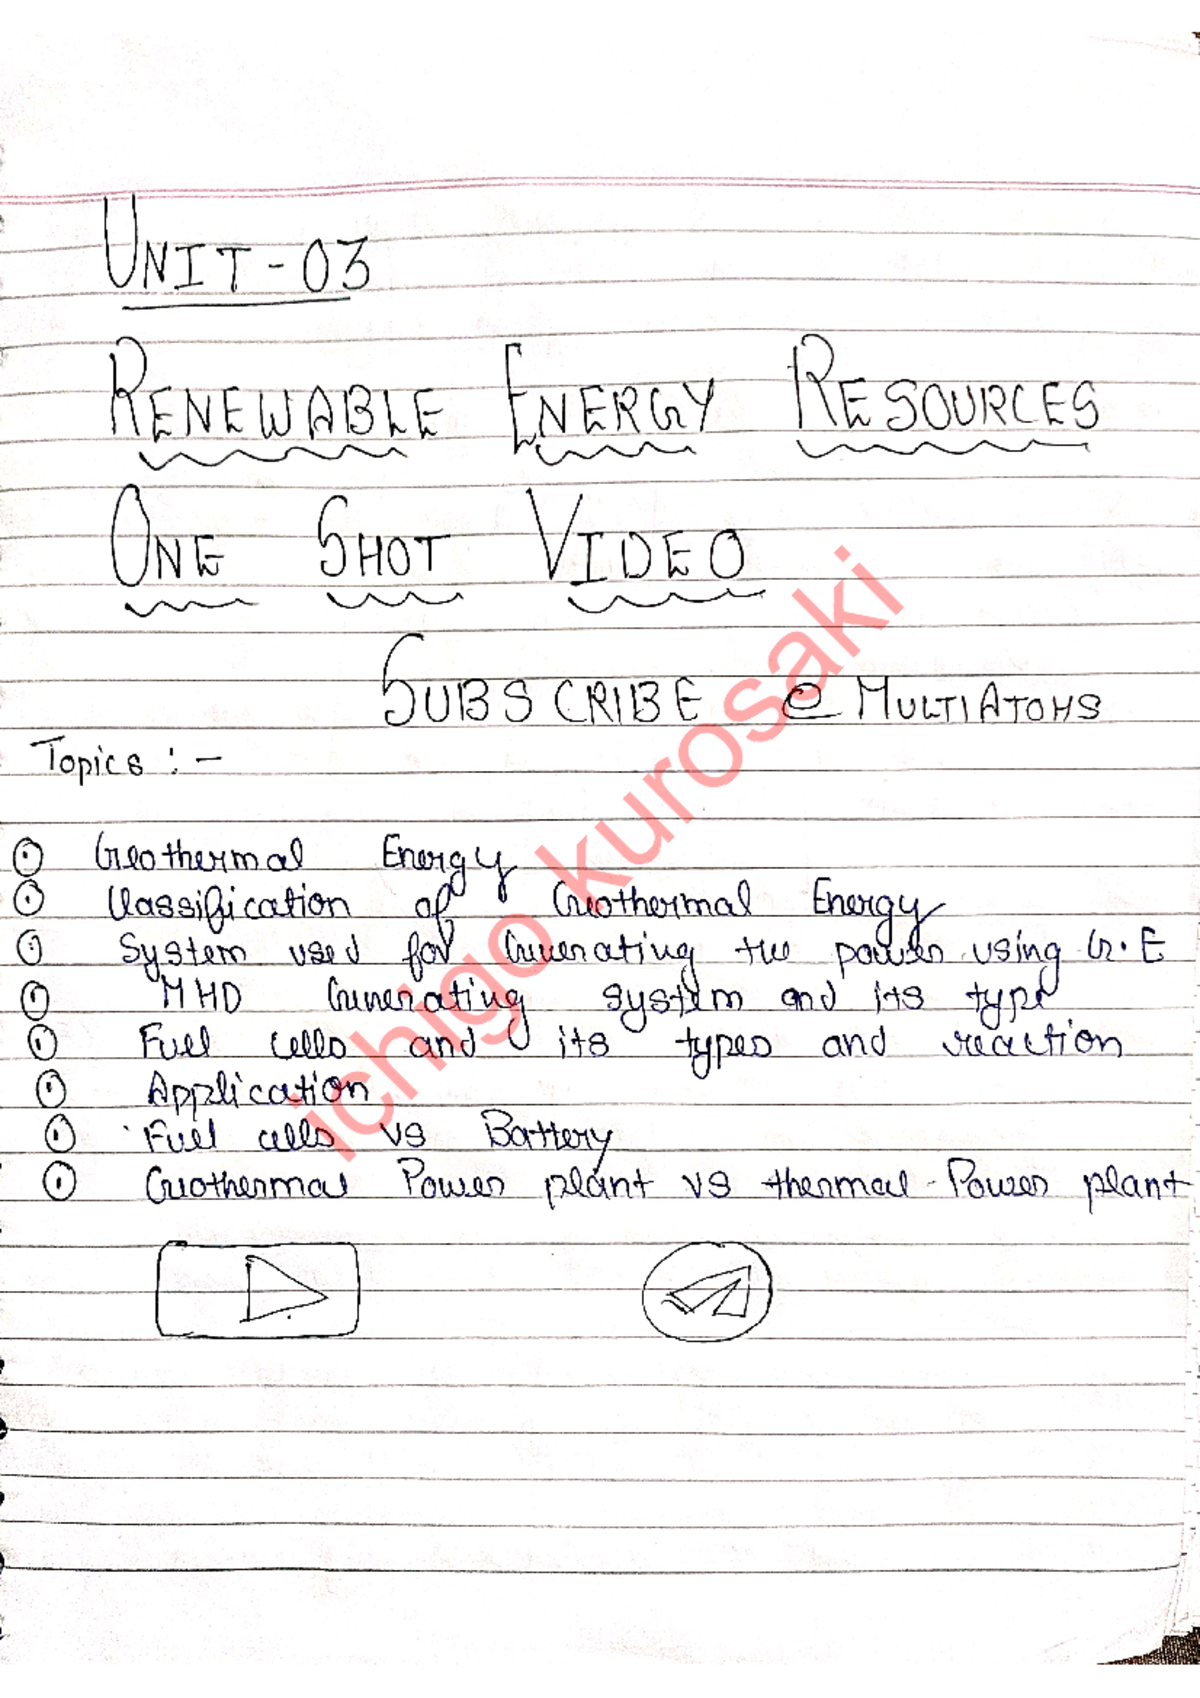 UNIT-03
RENEWABLE ENERGY RESOURCES
ONE SHOT VIDEO
SUBSCRIBE @ MULTIATOMS
Topics :-
Geothermal Energy
Classification of Geothermal Energy
System used for Generating the power using G.E
MHD Generating system and its type
Fuel cells and its types and reaction
Application
Fuel cells vs Battery
Geothermal Power plant vs thermal Power plant
ichigo kurosaki